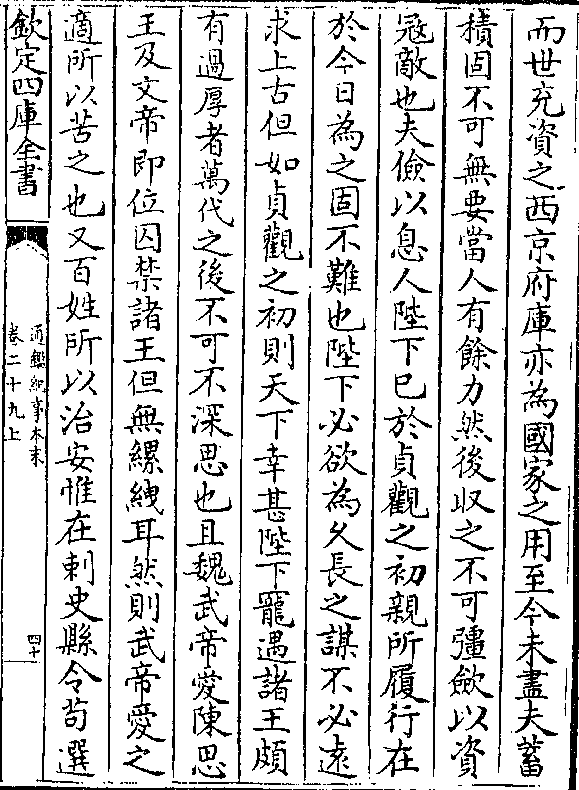 而世充資之西京府庫亦為國家之用至今未盡夫蓄
積固不可無要當人有餘力然後収之不可彊斂以資
宼敵也夫儉以息人陛下已於貞觀之初親所履行在
於今日為之固不難也陛下必欲為久長之謀不必遠
求上古但如貞觀之初則天下幸甚陛下寵遇諸王頗
有過厚者萬代之後不可不深思也且魏武帝愛陳思
王及文帝即位囚禁諸王但無縲絏耳然則武帝愛之
適所以苦之也又百姓所以治安惟在刺史縣令苟選
欽定四庫全書
通鑑紀事本末
卷二十九上
四十